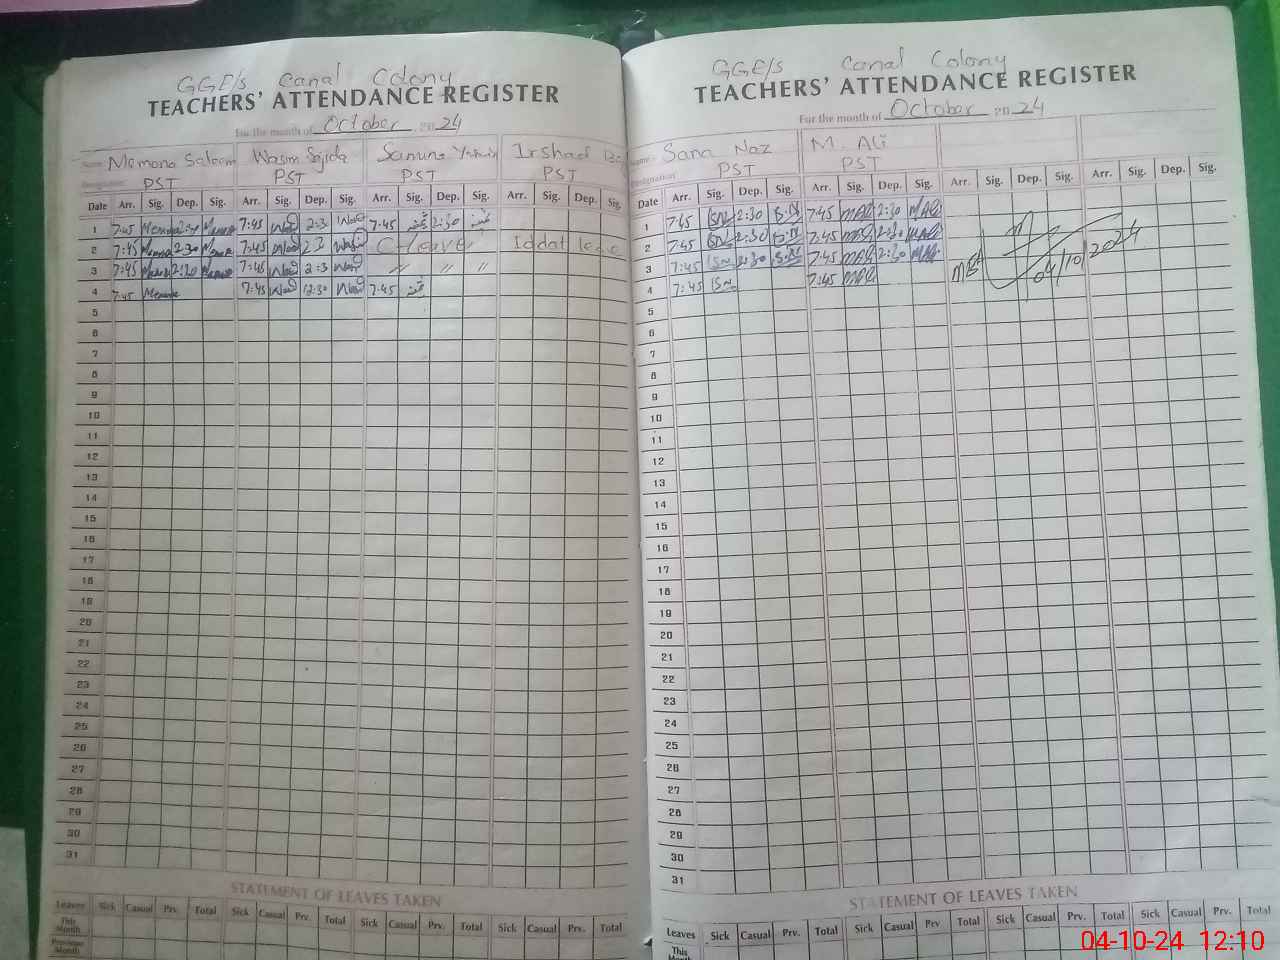 GGE/s Canal Colony
TEACHERS' ATTENDANCE REGISTER
For the month of October 2024
Name Memona Saleem Wasim Sajida Irshad
Designation PST PST PST PST
Date Arr. Sig. Dep. Sig. Arr. Sig. Dep. Sig. Arr. Sig. Dep. Sig. Arr. Sig. Dep. Sig.
1 7:45 7:45 2:3 7:45 2:30
2 7:45 2:30 7:45 2:3 C-leave Iddat leave
3 7:45 2:30 7:45 2:3 〃 〃 〃
4 7:45 7:45 12:30 7:45
5
6
7
8
9
10
11
12
13
14
15
16
17
18
19
20
21
22
23
24
25
26
27
28
29
30
31
STATEMENT OF LEAVES TAKEN
Leaves Sick Casual Prv. Total Sick Casual Prv. Total Sick Casual Prv. Total Sick Casual Prv. Total
This Month
Previous Month
GGE/s Canal Colony
TEACHERS' ATTENDANCE REGISTER
For the month of October 2024
Name Sana Naz M. Ali
Designation PST PST
Date Arr. Sig. Dep. Sig. Arr. Sig. Dep. Sig. Arr. Sig. Dep. Sig. Arr. Sig. Dep. Sig.
1 7:45 2:30 7:45 2:30
2 7:45 2:30 7:45 2:30
3 7:45 2:30 7:45 2:30
4 7:45 7:45
04/10/2024
5
6
7
8
9
10
11
12
13
14
15
16
17
18
19
20
21
22
23
24
25
26
27
28
29
30
31
STATEMENT OF LEAVES TAKEN
Leaves Sick Casual Prv. Total Sick Casual Prv Total Sick Casual Prv. Total Sick Casual Prv. Total
This Month
04-10-24 12:10